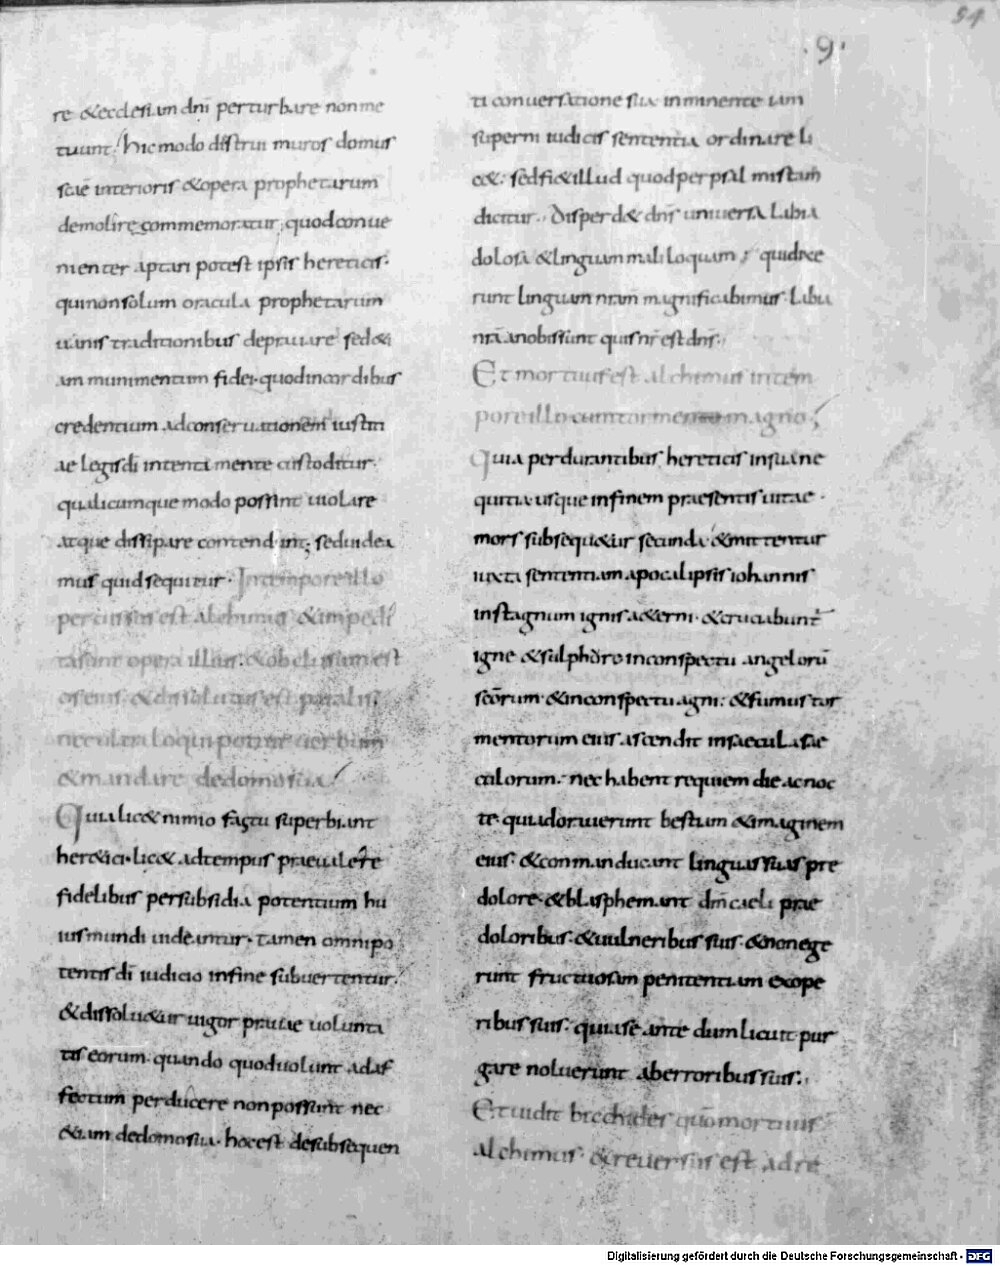 51
.9.
re & ecclesiam dnī perturbare non me
tuunt; hic modo distrui muros domus
scāe interioris & opera prophetarum
demolire commemoratur, quod conue
nienter aptari potest ipsis hereticis.
qui non solum oracula prophetarum
uanis traditionibus deprauare sed &i
am munimentum fidei. quod in cordibus
credentium ad conseruationem iusti
ae legis dī intenta mente custoditur.
qualicumque modo possint uiolare
atque dissipare contendunt; sed uidea
mus quid sequitur. In tempore illo
percussus est alchimus & impedi
ta sunt opera illius. & obclusum est
os eius. & dissolutus est paralisi.
nec ultra loqui potuit uerbum
& mandare de domo sua;
Quia lic& nimio fastu superbiant
her&ici. lic& ad tempus praeualere
fidelibus per subsidia potentium hu
ius mundi uideantur. tamen omnipo
tentis dī iudicio in fine subuertentur.
& dissolu&ur uigor prauae uolunta
tis eorum. quando quod uolunt ad af
fectum perducere non possunt nec
&iam de domo sua. hoc est de subsequen
ti conuersatione sua inminente iam
superni iudicis sententia ordinare li
c&. sed fi& illud quod per psalmistam
dicitur. Disperd& dns uniuersa labia
dolosa & linguam maliloquam; qui dixe
runt linguam nram magnificabimus. labia
nrā a nobis sunt quis nr̄ est dns.
Et mortuus est alchimus in tem
pore illo cum tormento magno;
Quia perdurantibus hereticis in sua ne
quitia usque in finem praesentis uitae.
mors subsequ&ur secunda & mittentur
iuxta sententiam apocalipsis iohannis
in stagnum ignis a&erni. & cruciabunt̄
igne & sulphore in conspectu angelorū
scōrum. & in conspectu agni. & fumus tor
mentorum eius ascendit in saecula sae
culorum. nec habent requiem die ac noc
te. qui adorauerunt bestiam & imaginem
eius. & conmanducant linguas suas pre
dolore. & blasphemant dm̄ caeli prae
doloribus. & uulneribus suis. & non ege
runt fructuosam penitentiam ex ope
ribus suis. quia se ante dum licuit pur
gare noluerunt ab erroribus suis.
Et uidit bacchides quō mortuus
alchimus. & reuersus est ad re
Digitalisierung gefördert durch die Deutsche Forschungsgemeinschaft - DFG